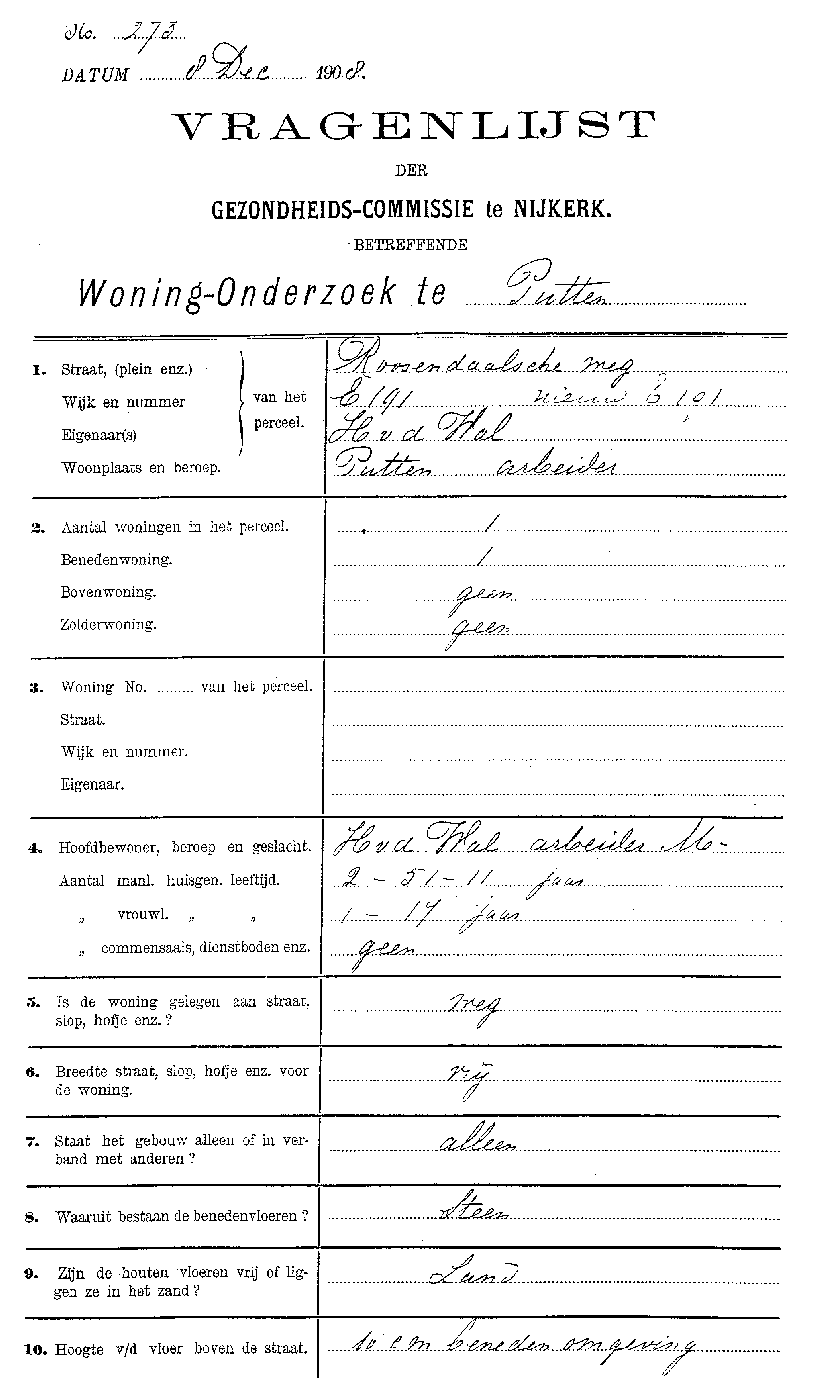 No. 273
DATUM 8 Dec 1908.
VRAGENLIJST
DER
GEZONDHEIDS-COMMISSIE te NIJKERK.
BETREFFENDE
Woning-Onderzoek te Putten
1. Straat, (plein enz.) Roosendaalsche weg
Wijk en nummer van het perceel. E 191 nieuw E 101
Eigenaar(s) H v d Wal
Woonplaats en beroep. Putten arbeider
2. Aantal woningen in het perceel. 1
Benedenwoning. 1
Bovenwoning. geen
Zolderwoning. geen
3. Woning No. ......... van het perceel.
Straat.
Wijk en nummer.
Eigenaar.
4. Hoofdbewoner, beroep en geslacht. H v d Wal arbeider M-
Aantal manl. huisgen. leeftijd. 2 - 51 - 11 jaar
„ vrouwl. „ „ 1 - 17 jaar
„ commensaals, dienstboden enz. geen
5. Is de woning gelegen aan straat, weg
slop, hofje enz.?
6. Breedte straat, slop, hofje enz. voor vrij
de woning.
7. Staat het gebouw alleen of in ver- alleen
band met anderen?
8. Waaruit bestaan de benedenvloeren? Steen
9. Zijn de houten vloeren vrij of lig- Zand
gen ze in het zand?
10. Hoogte v/d vloer boven de straat. 10 cm beneden omgeving